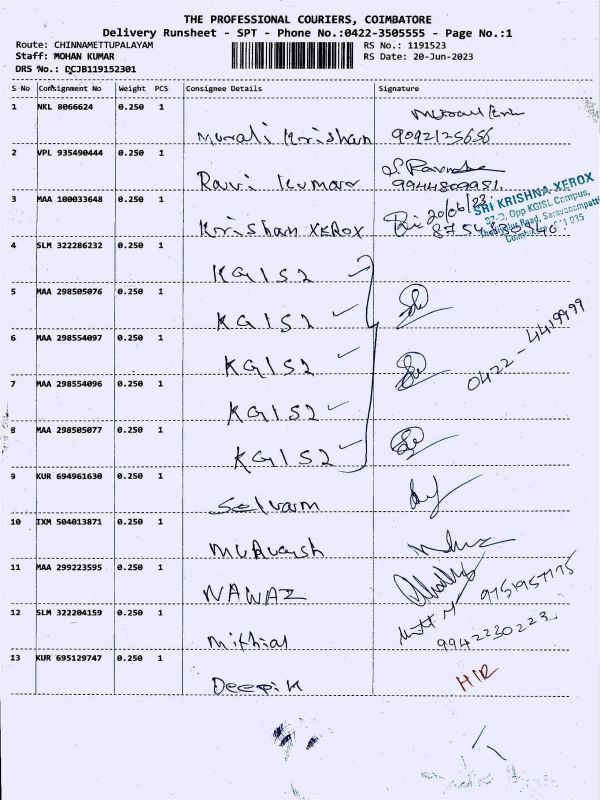 THE PROFESSIONAL COURIERS, COIMBATORE
Delivery Runsheet - SPT - Phone No.:0422-3505555 - Page No.:1
Route: CHINNAMETTUPALAYAM RS No.: 1191523
Staff: MOHAN KUMAR RS Date: 20-Jun-2023
DRS No.: DCJB119152301
S No Consignment No Weight PCS Consignee Details Signature
1 NKL 8066624 0.250 1
Murali Krishan 9092125656
2 VPL 935490444 0.250 1
Ravi Kumar 9944809981.
3 MAA 100033648 0.250 1
Krishan XERox 20/06/23
SRI KRISHNA XEROX
37-D, Opp KGISL Campus,
4 SLM 322286232 0.250 1
KGISL
5 MAA 298505076 0.250 1
KGISL
6 MAA 298554097 0.250 1
KGISL 0422-4419999
7 MAA 298554096 0.250 1
KGISL
8 MAA 298505077 0.250 1
KGISL
9 KUR 694961630 0.250 1
Selvam
10 IXM 504013871 0.250 1
11 MAA 299223595 0.250 1
NAWAZ 9751957775
12 SLM 322204159 0.250 1
9942230223
13 KUR 695129747 0.250 1
Deepik